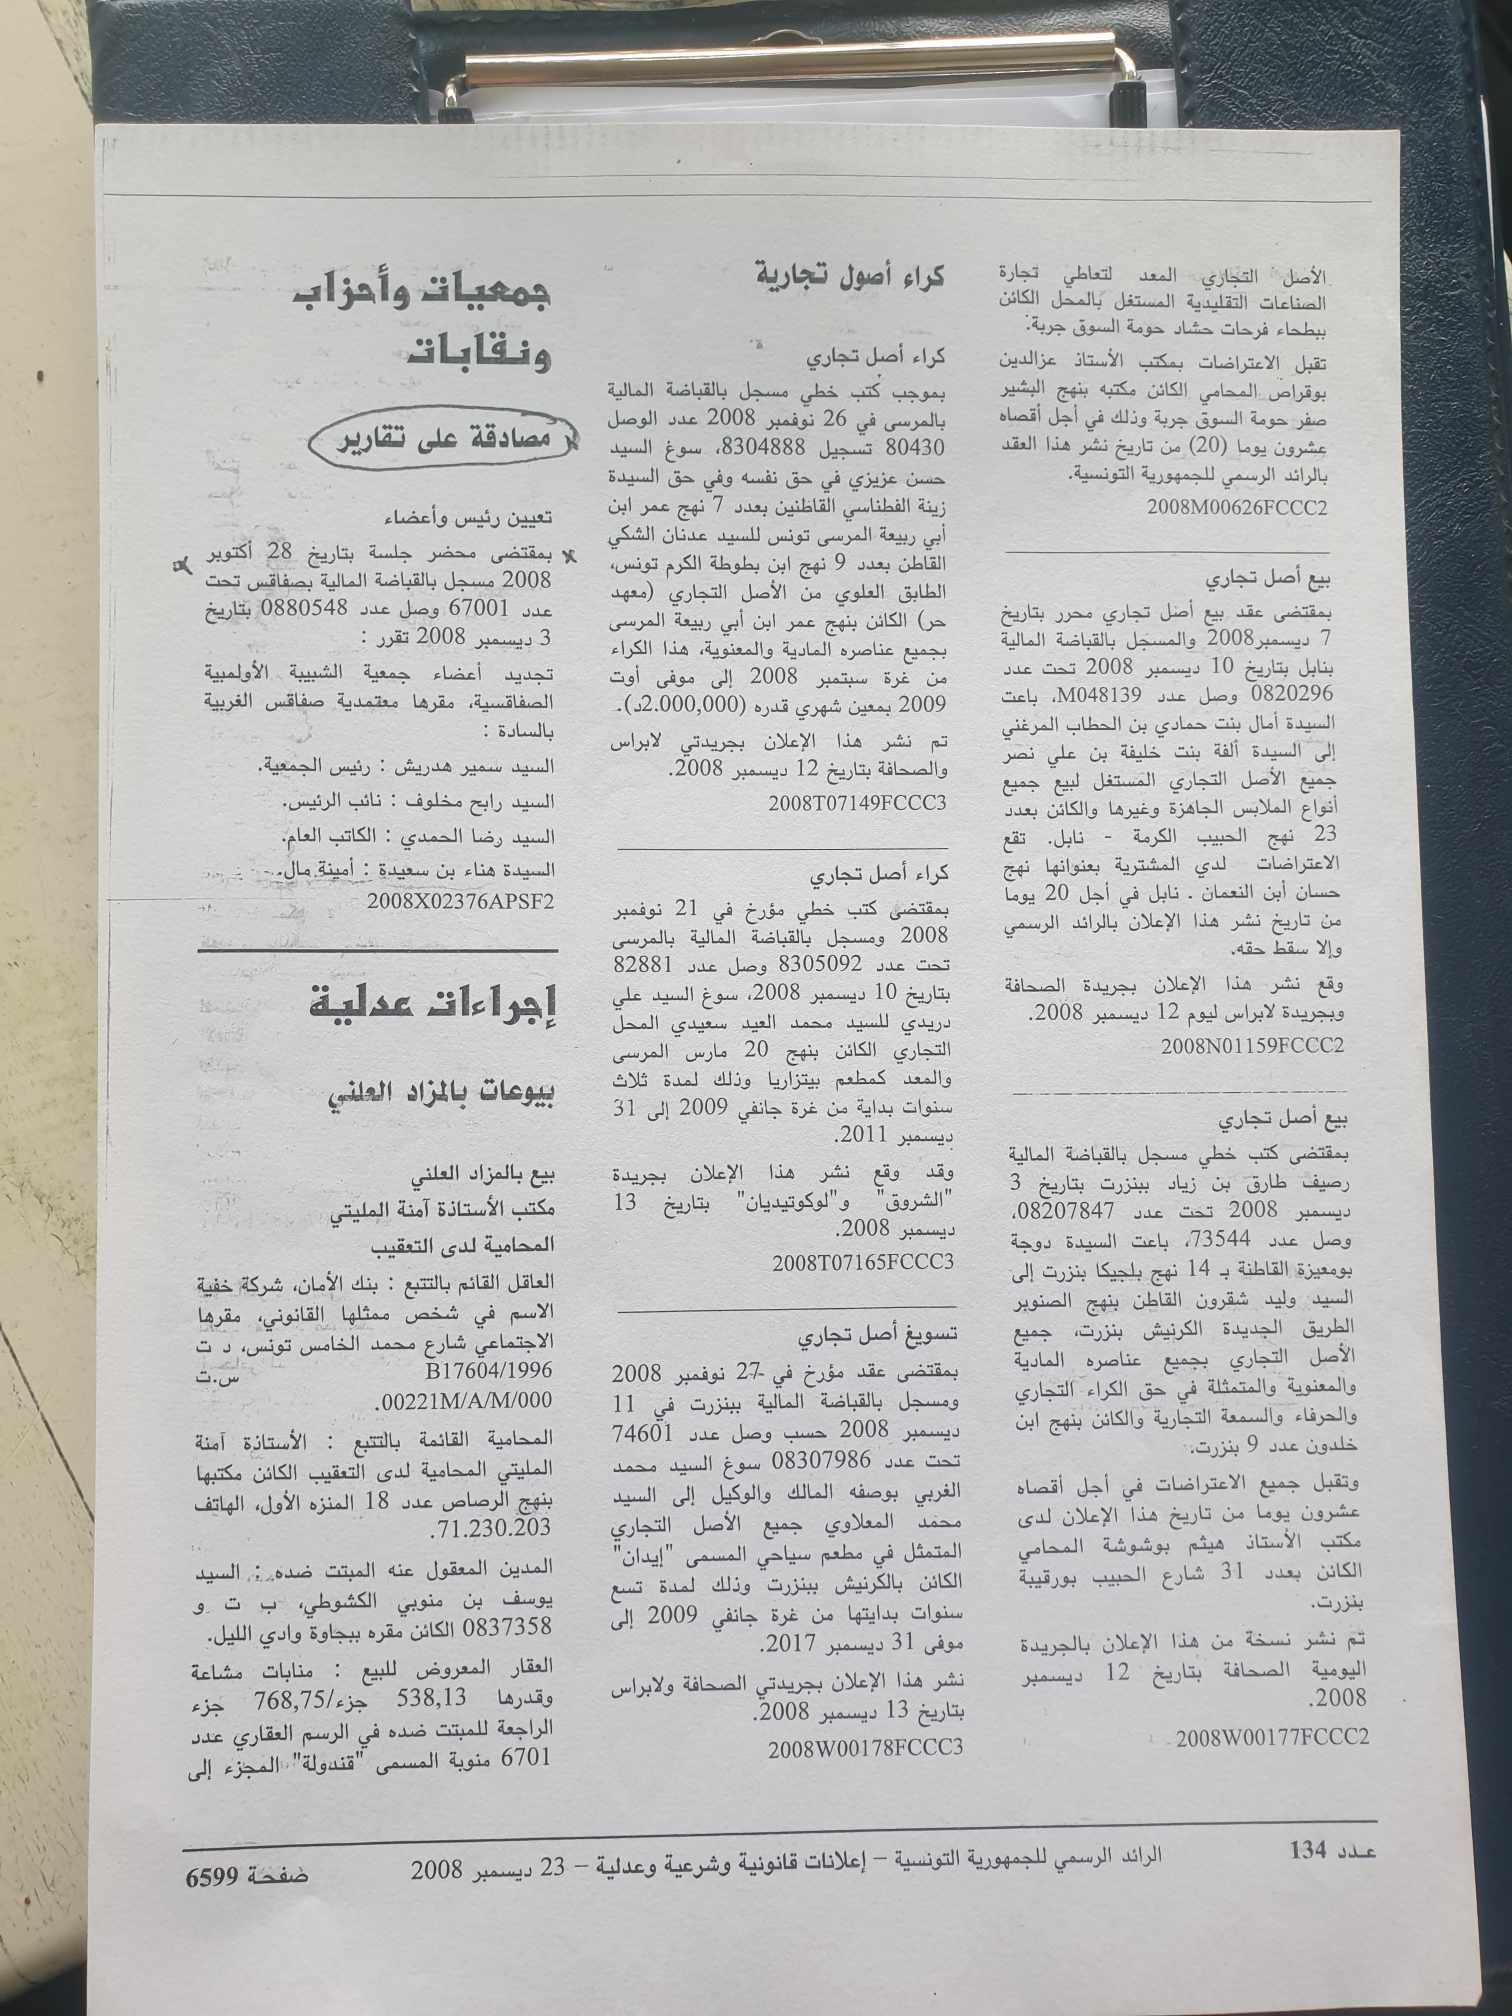 الأصل التجاري المعد لتعاطي تجارة
الصناعات التقليدية المستغل بالمحل الكائن
ببطحاء فرحات حشاد حومة السوق جربة.
تقبل الاعتراضات بمكتب الأستاذ عزالدين
بوقراص المحامي الكائن مكتبه بنهج البشير
صفر حومة السوق جربة وذلك في أجل أقصاه
عشرون يوما (20) من تاريخ نشر هذا العقد
بالرائد الرسمي للجمهورية التونسية.
2008M00626FCCC2
بيع أصل تجاري
بمقتضى عقد بيع أصل تجاري محرر بتاريخ
7 ديسمبر2008 والمسجل بالقباضة المالية
بنابل بتاريخ 10 ديسمبر 2008 تحت عدد
0820296 وصل عدد M048139، باعت
السيدة أمال بنت حمادي بن الحطاب المرغني
إلى السيدة ألفة بنت خليفة بن علي نصر
جميع الأصل التجاري المستغل لبيع جميع
أنواع الملابس الجاهزة وغيرها والكائن بعدد
23 نهج الحبيب الكرمة - نابل. تقع
الاعتراضات لدي المشترية بعنوانها نهج
حسان أبن النعمان . نابل في أجل 20 يوما
من تاريخ نشر هذا الإعلان بالرائد الرسمي
وإلا سقط حقه.
وقع نشر هذا الإعلان بجريدة الصحافة
وبجريدة لابراس ليوم 12 ديسمبر 2008.
2008N01159FCCC2
بيع أصل تجاري
بمقتضى كتب خطي مسجل بالقباضة المالية
رصيف طارق بن زياد ببنزرت بتاريخ 3
ديسمبر 2008 تحت عدد 08207847،
وصل عدد 73544، باعت السيدة دوجة
بومعيزة القاطنة بـ 14 نهج بلجيكا بنزرت إلى
السيد وليد شقرون القاطن بنهج الصنوبر
الطريق الجديدة الكرنيش بنزرت، جميع
الأصل التجاري بجميع عناصره المادية
والمعنوية والمتمثلة في حق الكراء التجاري
والحرفاء والسمعة التجارية والكائن بنهج ابن
خلدون عدد 9 بنزرت.
وتقبل جميع الاعتراضات في أجل أقصاه
عشرون يوما من تاريخ هذا الإعلان لدى
مكتب الأستاذ هيثم بوشوشة المحامي
الكائن بعدد 31 شارع الحبيب بورقيبة
بنزرت.
تم نشر نسخة من هذا الإعلان بالجريدة
اليومية الصحافة بتاريخ 12 ديسمبر
2008.
2008W00177FCCC2
كراء أصول تجارية
كراء أصل تجاري
بموجب كتب خطي مسجل بالقباضة المالية
بالمرسى في 26 نوفمبر 2008 عدد الوصل
80430 تسجيل 8304888، سوغ السيد
حسن عزيزي في حق نفسه وفي حق السيدة
زينة الفطناسي القاطنين بعدد 7 نهج عمر ابن
أبي ربيعة المرسى تونس للسيد عدنان الشكي
القاطن بعدد 9 نهج ابن بطوطة الكرم تونس،
الطابق العلوي من الأصل التجاري (معهد
حر) الكائن بنهج عمر ابن أبي ربيعة المرسى
بجميع عناصره المادية والمعنوية، هذا الكراء
من غرة سبتمبر 2008 إلى موفى أوت
2009 بمعين شهري قدره (2.000,000د).
تم نشر هذا الإعلان بجريدتي لابراس
والصحافة بتاريخ 12 ديسمبر 2008.
2008T07149FCCC3
كراء أصل تجاري
بمقتضى كتب خطي مؤرخ في 21 نوفمبر
2008 ومسجل بالقباضة المالية بالمرسى
تحت عدد 8305092 وصل عدد 82881
بتاريخ 10 ديسمبر 2008، سوغ السيد علي
دريدي للسيد محمد العيد سعيدي المحل
التجاري الكائن بنهج 20 مارس المرسى
والمعد كمطعم بيتزاريا وذلك لمدة ثلاث
سنوات بداية من غرة جانفي 2009 إلى 31
ديسمبر 2011.
وقد وقع نشر هذا الإعلان بجريدة
"الشروق" و"لوكوتيديان" بتاريخ 13
ديسمبر 2008.
2008T07165FCCC3
تسويغ أصل تجاري
بمقتضى عقد مؤرخ في 27 نوفمبر 2008
ومسجل بالقباضة المالية ببنزرت في 11
ديسمبر 2008 حسب وصل عدد 74601
تحت عدد 08307986 سوغ السيد محمد
الغربي بوصفه المالك والوكيل إلى السيد
محمد المعلاوي جميع الأصل التجاري
المتمثل في مطعم سياحي المسمى "إيدان"
الكائن بالكرنيش ببنزرت وذلك لمدة تسع
سنوات بدايتها من غرة جانفي 2009 إلى
موفى 31 ديسمبر 2017.
نشر هذا الإعلان بجريدتي الصحافة ولابراس
بتاريخ 13 ديسمبر 2008.
2008W00178FCCC3
جمعيات وأحزاب
ونقابات
مصادقة على تقارير
تعيين رئيس وأعضاء
بمقتضى محضر جلسة بتاريخ 28 أكتوبر
2008 مسجل بالقباضة المالية بصفاقس تحت
عدد 67001 وصل عدد 0880548 بتاريخ
3 ديسمبر 2008 تقرر :
تجديد أعضاء جمعية الشبيبة الأولمبية
الصفاقسية، مقرها معتمدية صفاقس الغربية
بالسادة :
السيد سمير هدريش : رئيس الجمعية.
السيد رابح مخلوف : نائب الرئيس.
السيد رضا الحمدي : الكاتب العام.
السيدة هناء بن سعيدة : أمينة مال.
2008X02376APSF2
إجراءات عدلية
بيوعات بالمزاد العلني
بيع بالمزاد العلني
مكتب الأستاذة آمنة المليتي
المحامية لدى التعقيب
العاقل القائم بالتتبع : بنك الأمان، شركة خفية
الاسم في شخص ممثلها القانوني، مقرها
الاجتماعي شارع محمد الخامس تونس، د ت
B17604/1996 س.ت
00221M/A/M/000.
المحامية القائمة بالتتبع : الأستاذة آمنة
المليتي المحامية لدى التعقيب الكائن مكتبها
بنهج الرصاص عدد 18 المنزه الأول، الهاتف
71.230.203.
المدين المعقول عنه المبتت ضده : السيد
يوسف بن منوبي الكشوطي، ب ت و
0837358 الكائن مقره ببجاوة وادي الليل.
العقار المعروض للبيع : منابات مشاعة
وقدرها 538,13 جزء/768,75 جزء
الراجعة للمبتت ضده في الرسم العقاري عدد
6701 منوبة المسمى "قندولة" المجزء إلى
عـدد 134
الرائد الرسمي للجمهورية التونسية – إعلانات قانونية وشرعية وعدلية – 23 ديسمبر 2008
صفحـة 6599